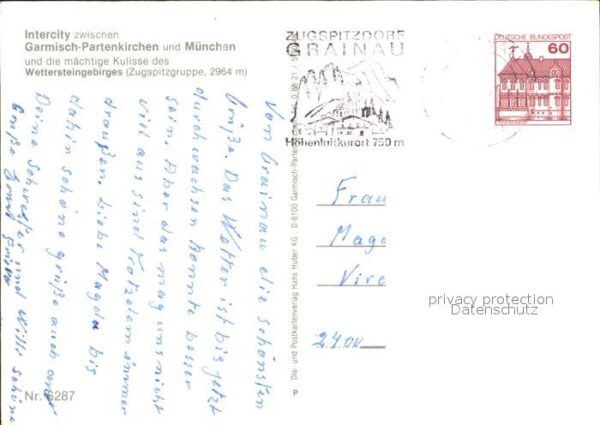 Intercity zwischen
Garmisch-Partenkirchen und München
und die mächtige Kulisse des
Wettersteingebirges (Zugspitzgruppe, 2964 m)
ZUGSPITZDORF
GRAINAU
Höhenluftkurort 750 m
DEUTSCHE BUNDESPOST
60
Von Grainau die schönsten
Grüße. Das Wetter ist bis jetzt
durchwachsen könnte besser
sein. Aber das mag uns nicht
will aus sind trotzdem immer
draußen. Liebe Magda bis
dahin schöne Grüße auch an
Deine Schwester und Willi schöne
Grüße
Dia- und Postkartenverlag Hans Huber KG., D-8100 Garmisch-Parten
Frau
Magd
Vire
2400
privacy protection
Datenschutz
Nr. 6287
P